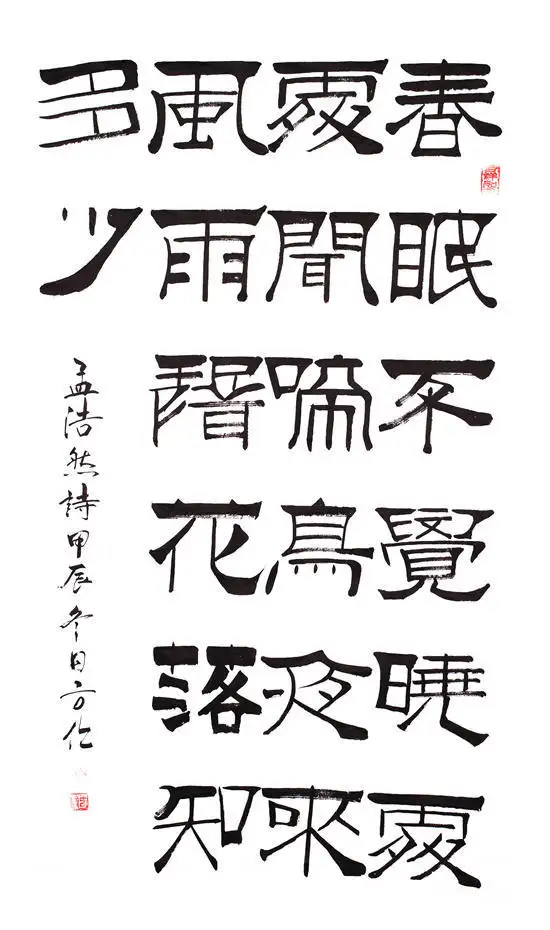 春眠不覺曉處
處聞啼鳥夜來
風雨聲花落知
多少
孟浩然詩甲辰冬日方